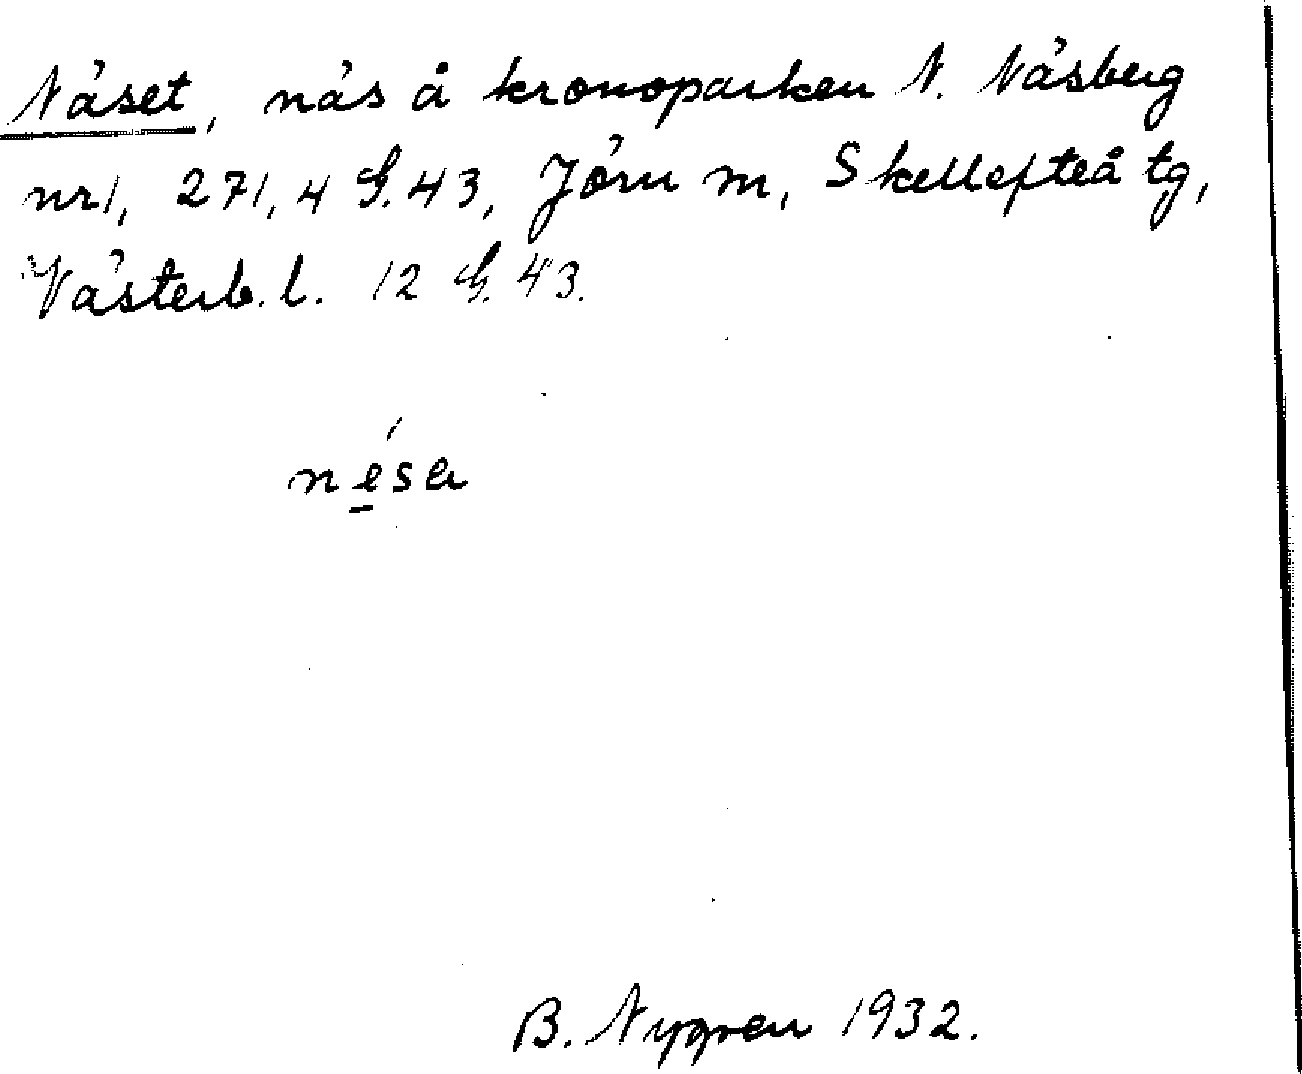 Näset, näs å kronoparken N. Näsberg
nr 1, 271, 4 G. 43, Jörn m, Skellefteå tg,
Västerb. l. 12 G. 43.
nésa
B. Nygren 1932.